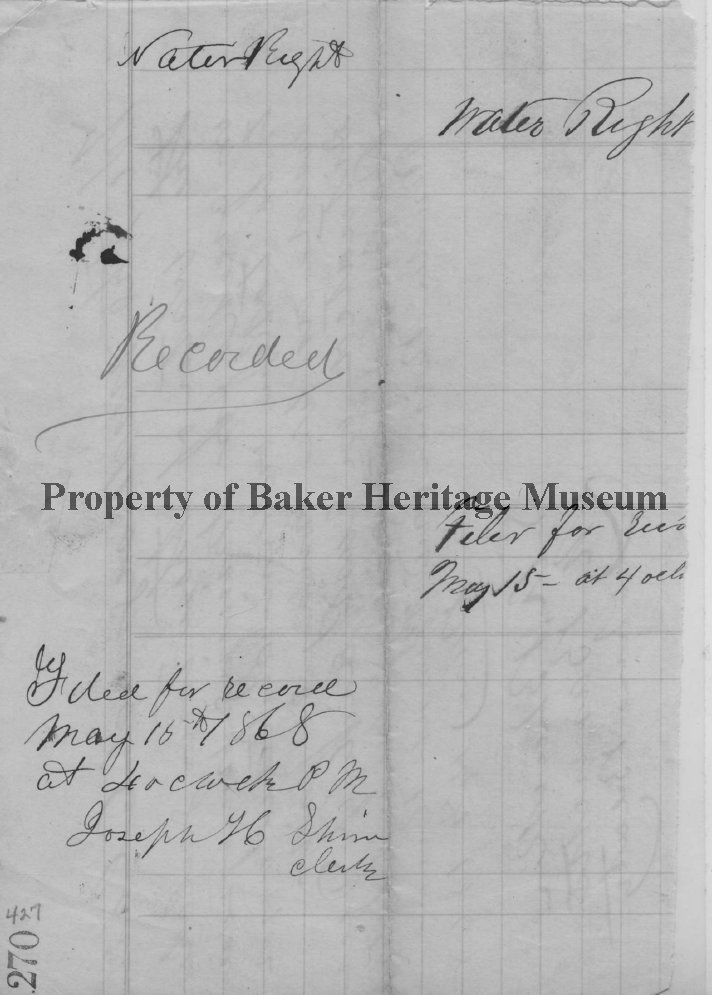 Water Right
Water Right
Recorded
Property of Baker Heritage Museum
Filed for
May 15 - at 4 ocl
Filed for record
May 15th 1868
at 4 oclock P M
Joseph H Shinn
clerk
427
270